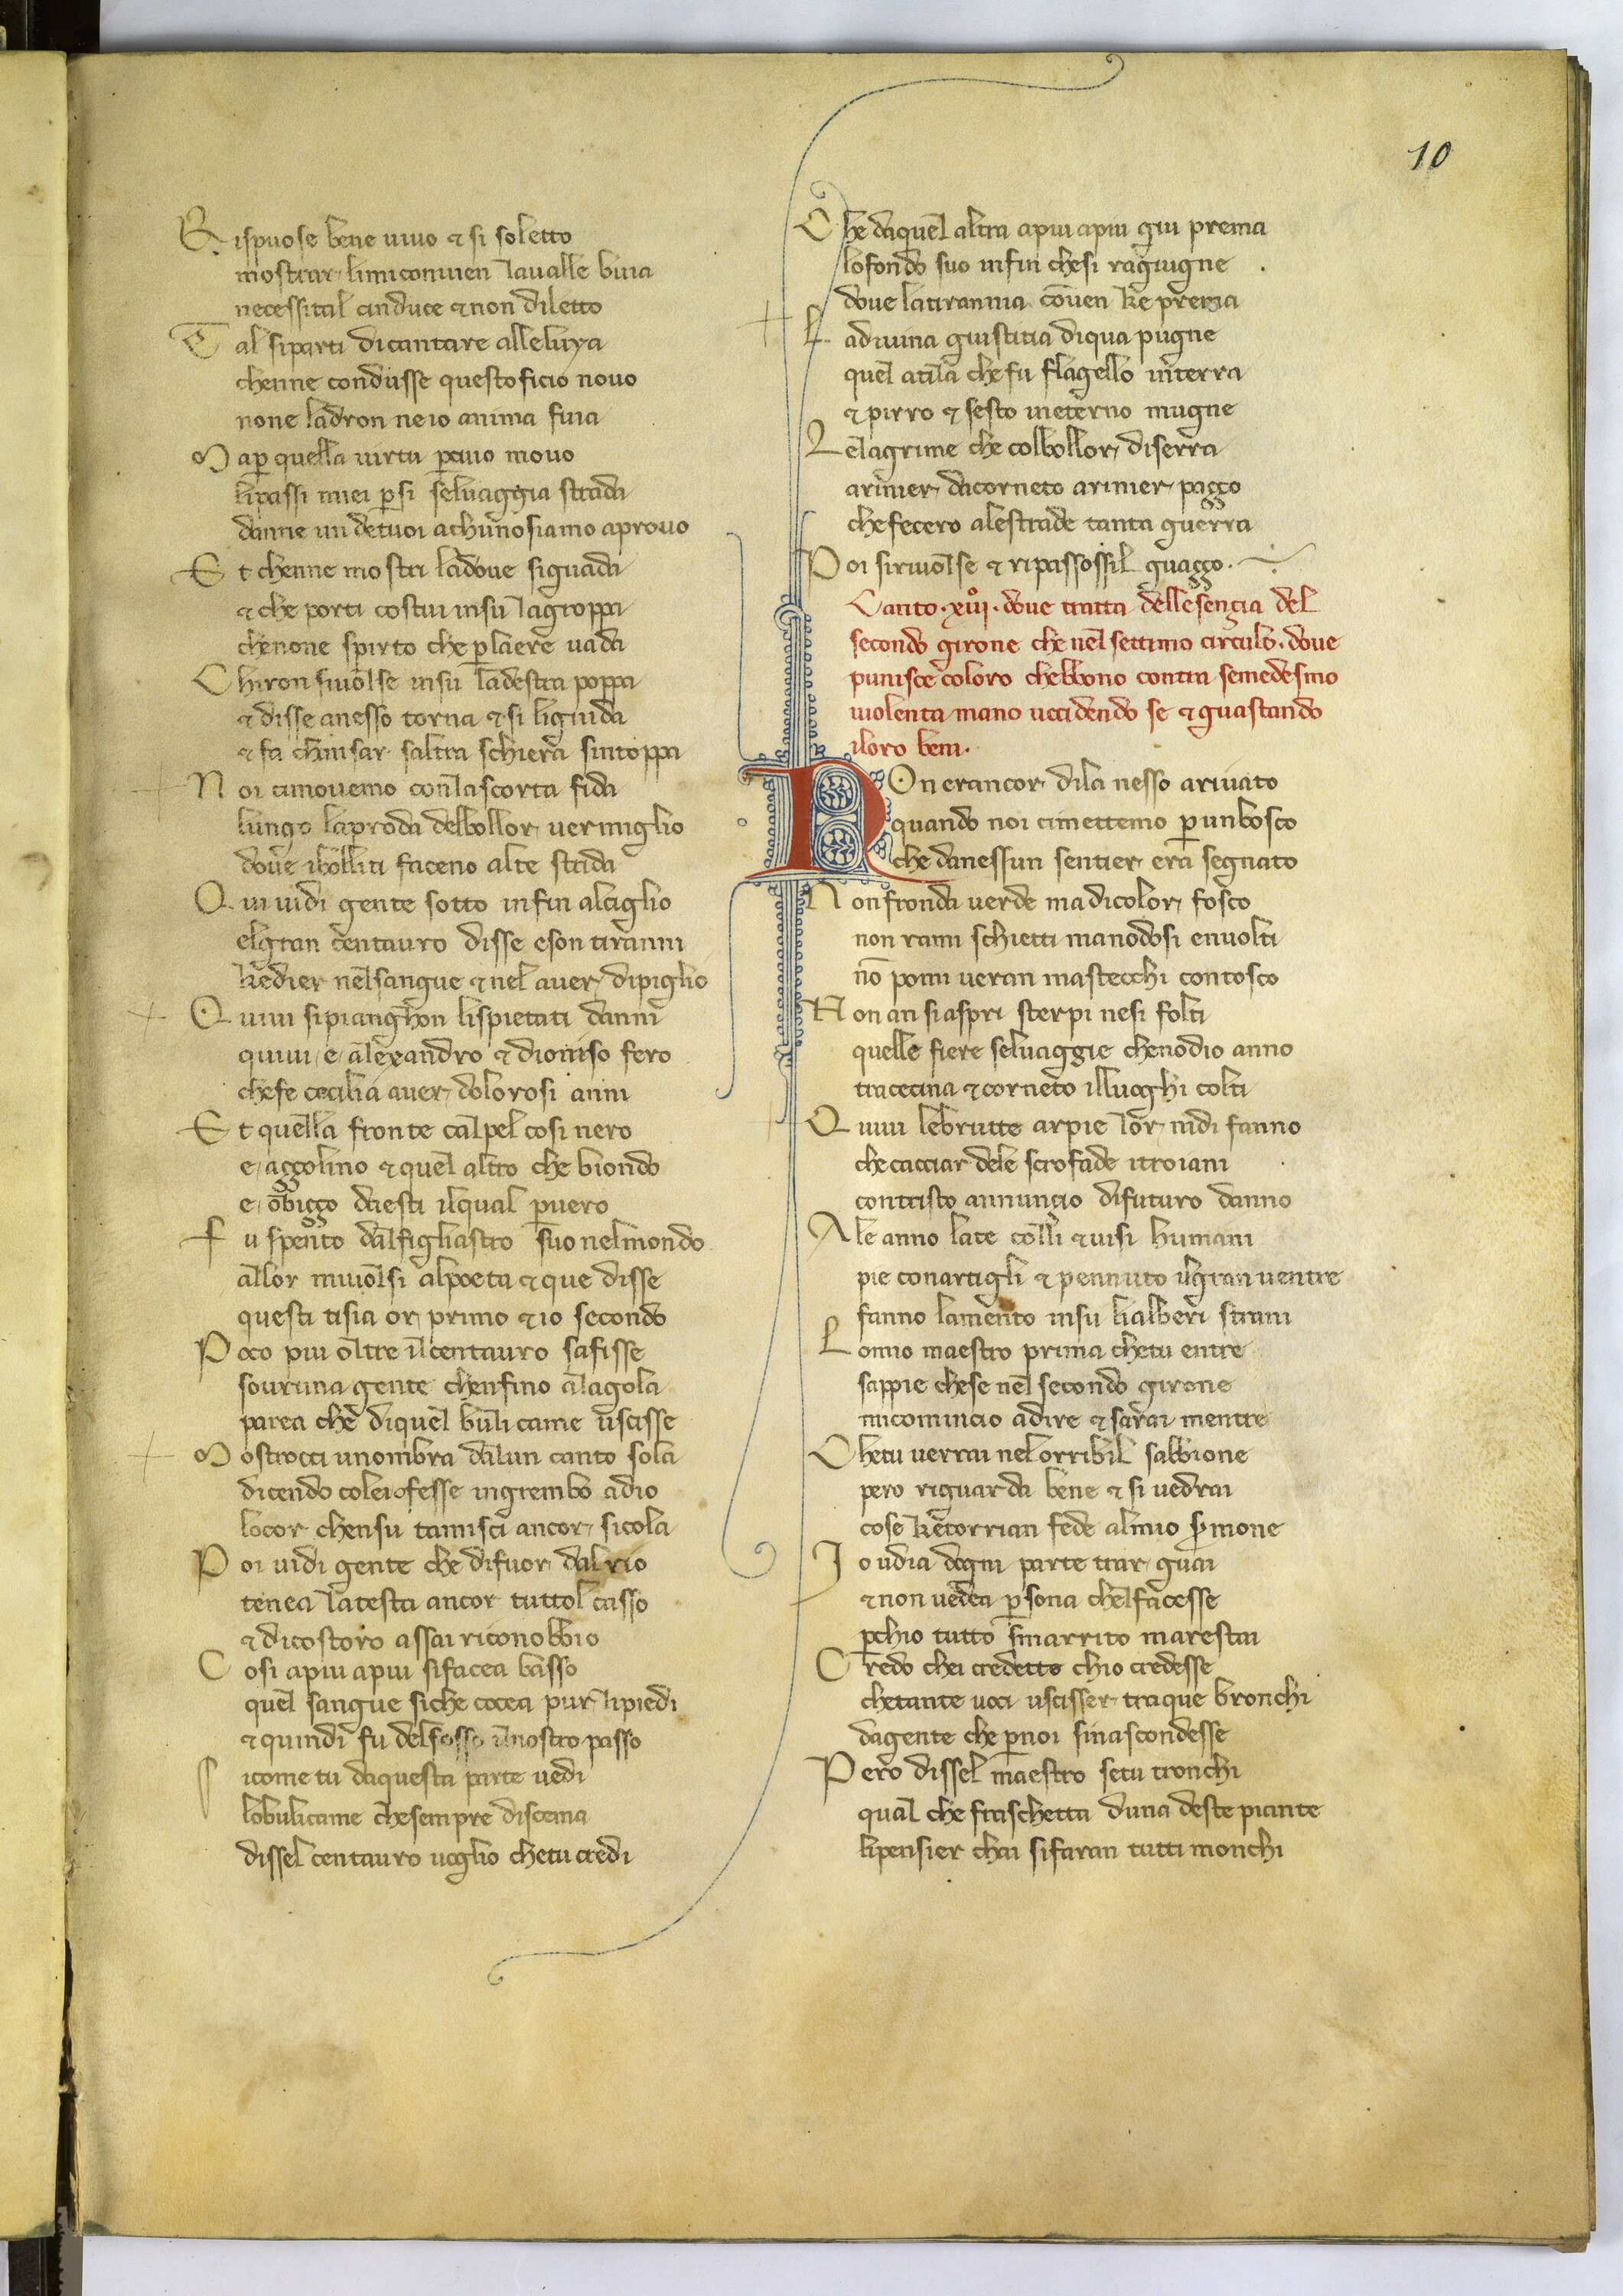 10
Rispuose bene uiuo et si soletto
mostrar limiconuien laualle buia
necessital cinduce et non diletto
Tal siparti dicantare alleluya
chenne condusse questoficio nouo
none ladron neio anima fuia
Map quella uirtu p cuio mouo
lipassi miei p si seluaggia strada
danne un detuoi achunosiamo aprouo
Et chenne mostri ladoue siguada
et che porti costui insu lagroppa
chenone spirto che p laiere uada
Chiron siuolse insu ladestra poppa
et disse anesso torna et si liguida
et fa chinsar saltra schiera sintoppa
Noi cimouemo conlascorta fida
lungo laproda delbollor uermiglio
doue ibolliti faceno alte strida
Qui uidi gente sotto infin alciglio
elgran centauro disse eson tiranni
kedier nelsangue et nel auer dipiglio
Quiui sipianghon lispietati danni
quiui e alexandro et dioniso fero
chefe cicilia auer dolorosi anni
Et quella fronte calpel cosi nero
e aççolino et quel altro che biondo
e obiçço daesti ilqual puero
Fu spento dalfigliastro suo nelmondo
allor miuolsi alpoeta et que disse
questi tisia or primo et io secondo
Poco piu oltre ilcentauro safisse
souruna gente chenfino alagola
parea che diquel bulicame uscisse
Mostrocci unombra dalun canto sola
dicendo colei ofesse ingrembo adio
locor chensu tamisci ancor sicola
Poi uidi gente che difuor dal rio
tenea latesta ancor tuttol casso
et dicostoro assai riconobbio
Cosi apiu apiu sifacea basso
quel sangue siche cocea pur lipiedi
et quindi fu delfosso ilnostro passo
Sicome tu daquesta parte uedi
lobulicame chesempre discema
dissel centauro uoglio chetu credi
Che daquel altra apiu apiu giu prema
lofondo suo infin chesi ragiugne
doue latirannia couen ke prema
La diuina giustitia diqua pugne
quel atila chefu flagello interra
et pirro et sesto ineterno mugne
Lelagrime che colbollor diserra
arinier dacorneto arinier paçço
chefecero alestrade tanta guerra
Poi siriuolse et ripassossil guaçço.
Canto .xiij. doue tratta dellesencia del
secondo girone che nel settimo circulo. doue
punisce coloro chebbono contra semedesmo
uiolenta mano uccidendo se et guastando
iloro beni.
Non erancor dila nesso ariuato
quando noi cimettemo p unbosco
che danessun sentier era segnato
Non fronda uerde ma dicolor fosco
non rami schietti manodosi enuolti
no pomi ueran mastecchi contosco
Non an siaspri sterpi nesi folti
quelle fiere seluaggie chenodio anno
tracecina et corneto illuoghi colti
Quiui lebrutte arpie lor nidi fanno
checacciar dele scrofade itroiani
contristo annuncio difuturo danno
Ale anno late colli et uisi humani
pie conartigli et pennuto ilgran uentre
fanno lamento insu lialberi strani
Lomio maestro prima chetu entre
sappie chese nel secondo girone
micomincio adire et sarai mentre
Chetu uerrai nelorribil sabbione
pero riguarda bene et si uedrai
cose ketorrian fede almio smone
Io udia dogni parte trar guai
et non uedea psona chelfacesse
pchio tutto smarrito marestai
Credo chei credetto chio credesse
chetante uoci uscisser traque bronchi
dagente che pnoi sinascondesse
Pero dissel maestro setu tronchi
qual che fraschetta duna deste piante
lipensier chai sifaran tutti monchi